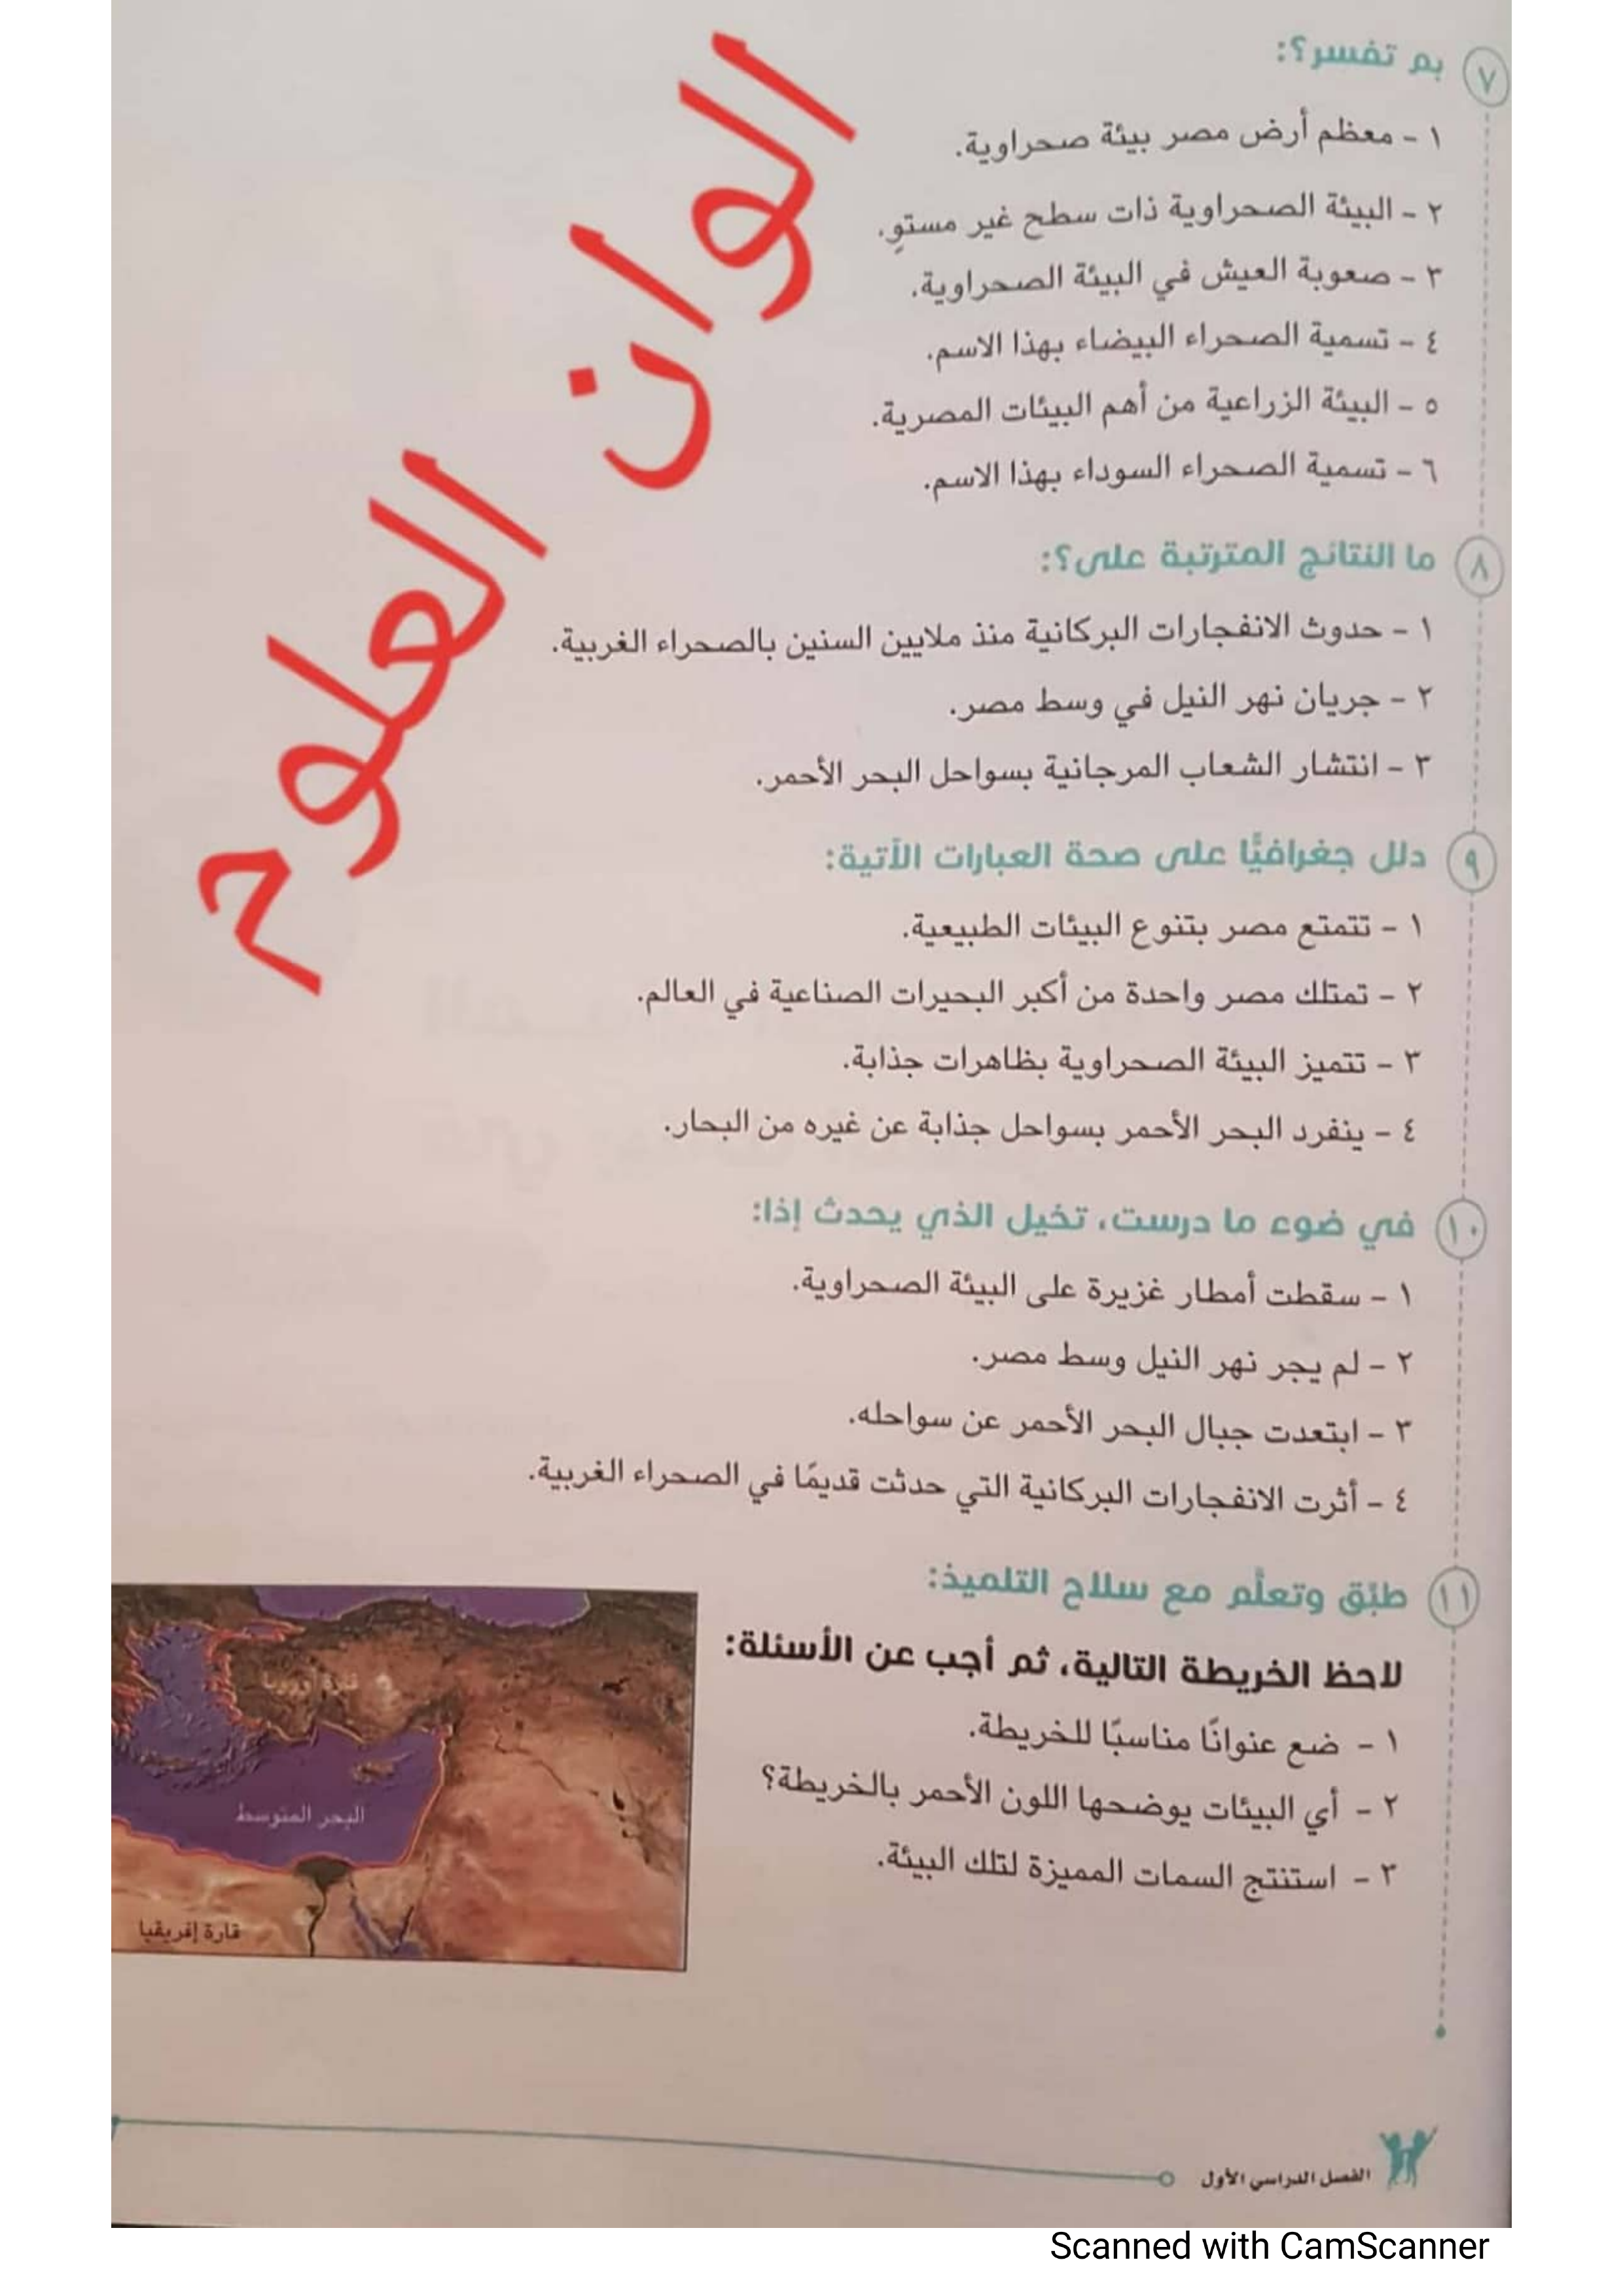 ٧ بم تفسر؟:
١ - معظم أرض مصر بيئة صحراوية.
٢ - البيئة الصحراوية ذات سطح غير مستوٍ.
٣ - صعوبة العيش في البيئة الصحراوية.
٤ - تسمية الصحراء البيضاء بهذا الاسم.
٥ - البيئة الزراعية من أهم البيئات المصرية.
٦ - تسمية الصحراء السوداء بهذا الاسم.
الوان العلوم
٨ ما النتائج المترتبة على؟:
١ - حدوث الانفجارات البركانية منذ ملايين السنين بالصحراء الغربية.
٢ - جريان نهر النيل في وسط مصر.
٣ - انتشار الشعاب المرجانية بسواحل البحر الأحمر.
٩ دلل جغرافيًّا على صحة العبارات الآتية:
١ - تتمتع مصر بتنوع البيئات الطبيعية.
٢ - تمتلك مصر واحدة من أكبر البحيرات الصناعية في العالم.
٣ - تتميز البيئة الصحراوية بظاهرات جذابة.
٤ - ينفرد البحر الأحمر بسواحل جذابة عن غيره من البحار.
١٠ في ضوء ما درست، تخيل الذي يحدث إذا:
١ - سقطت أمطار غزيرة على البيئة الصحراوية.
٢ - لم يجر نهر النيل وسط مصر.
٣ - ابتعدت جبال البحر الأحمر عن سواحله.
٤ - أثرت الانفجارات البركانية التي حدثت قديمًا في الصحراء الغربية.
١١ طبِّق وتعلَّم مع سلاح التلميذ:
لاحظ الخريطة التالية، ثم أجب عن الأسئلة:
١ - ضع عنوانًا مناسبًا للخريطة.
٢ - أي البيئات يوضحها اللون الأحمر بالخريطة؟
٣ - استنتج السمات المميزة لتلك البيئة.
قارة أوروبا
البحر المتوسط
قارة إفريقيا
الفصل الدراسي الأول
Scanned with CamScanner